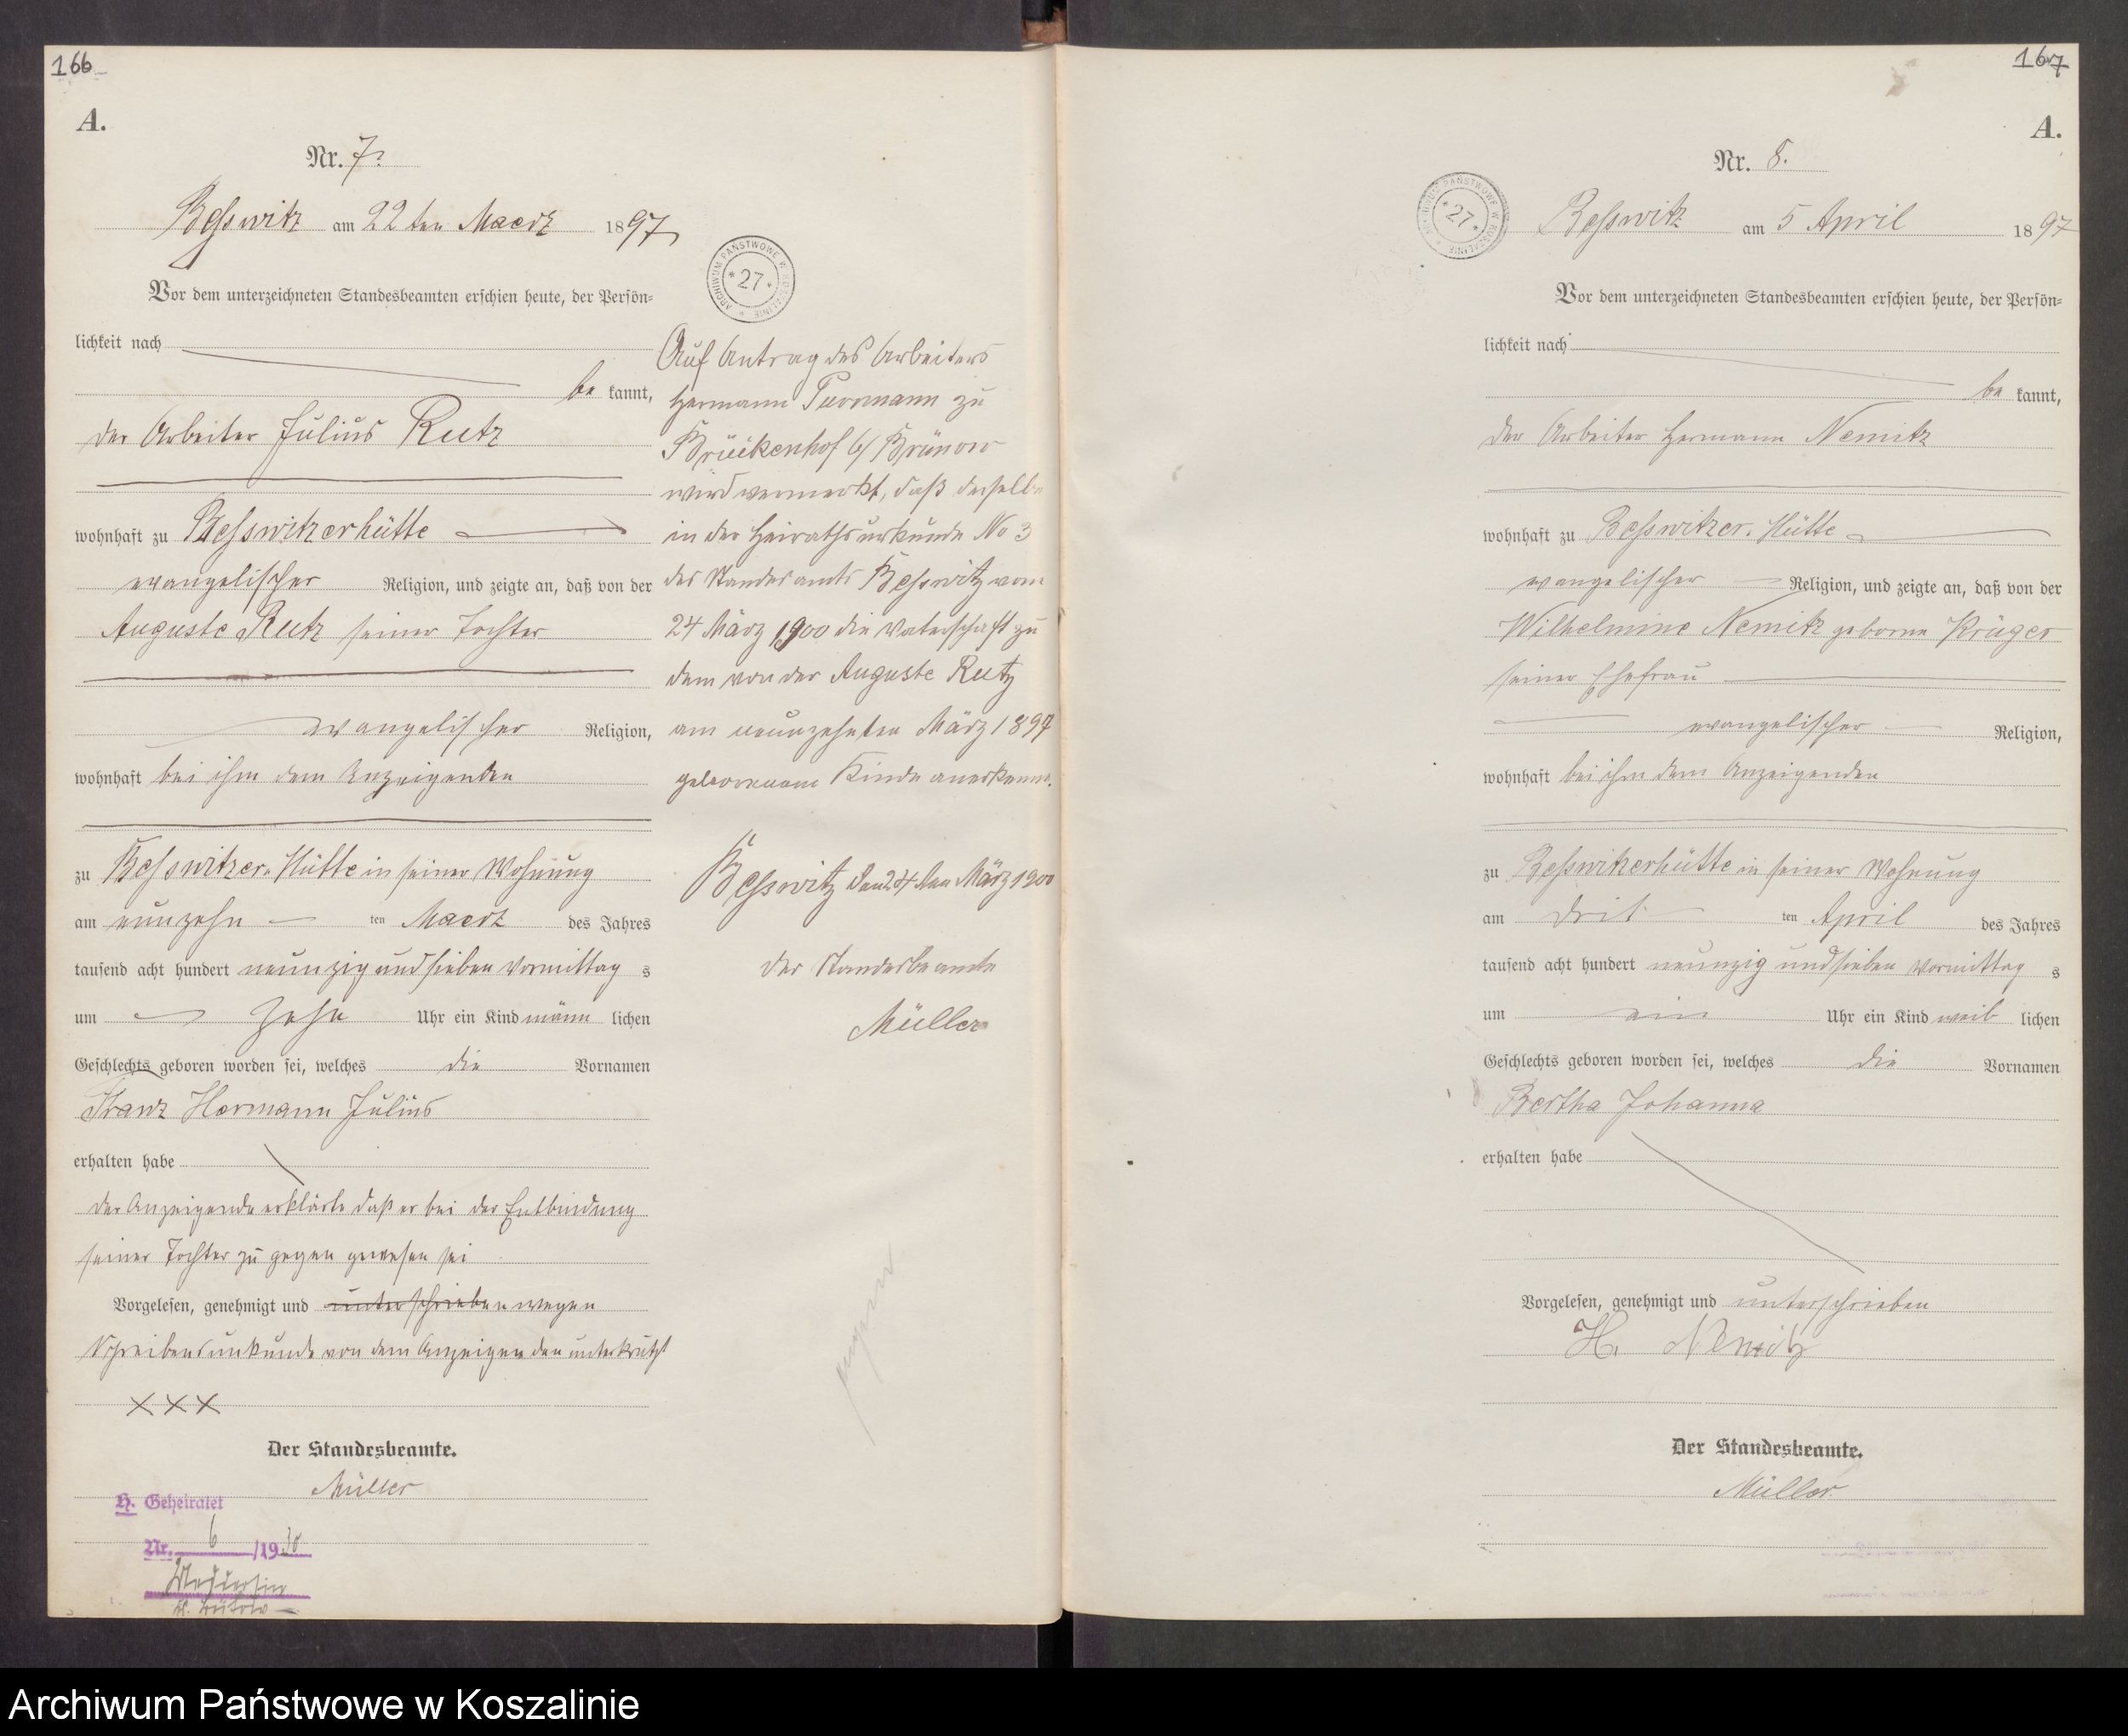 166
A.
Nr. 7.
Besswitz am 22ten Maerz 1897
Vor dem unterzeichneten Standesbeamten erschien heute, der Persön=
lichkeit nach
be kannt,
der Arbeiter Julius Rutz
wohnhaft zu Besswitzerhütte
evangelischer Religion, und zeigte an, daß von der
Auguste Rutz seiner Tochter
evangelischer Religion,
wohnhaft bei ihm dem Anzeigenden
zu Besswitzer-Hütte in seiner Wohnung
am neunzehn ten Maerz des Jahres
tausend acht hundert neunzig und sieben Vormittag s
um zehn Uhr ein Kind männ lichen
Geschlechts geboren worden sei, welches die Vornamen
Franz Hermann Julius
erhalten habe
der Anzeigende erklärte daß er bei der Entbindung
seiner Tochter zu gegen gewesen sei
Vorgelesen, genehmigt und unterschrieben wegen
Schreibensunkunde von dem Anzeigenden unterkreuzt
XXX
Der Standesbeamte.
Müller
H. Geheiratet
Nr. 6 /1930
ARCHIWUM PAŃSTWOWE W KOSZALINIE
* 27 *
Auf Antrag des Arbeiters
Hermann Purmann zu
Brückenhof b/ Brünow
wird vermerkt, daß derselbe
in der Heirathsurkunde No 3
des Standesamts Besswitz vom
24 März 1900 die Vaterschaft zu
dem von der Auguste Rutz
am neunzehnten März 1897
geborenem Kinde anerkannt.
Besswitz den 24ten März 1900
Der Standesbeamte
Müller
167
A.
Nr. 8.
ARCHIWUM PAŃSTWOWE W KOSZALINIE
* 27 *
Besswitz am 5 April 1897
Vor dem unterzeichneten Standesbeamten erschien heute, der Persön=
lichkeit nach
be kannt,
der Arbeiter Hermann Nemitz
wohnhaft zu Besswitzer-Hütte
evangelischer Religion, und zeigte an, daß von der
Wilhelmine Nemitz geborne Krüger
seiner Ehefrau
evangelischer Religion,
wohnhaft bei ihm dem Anzeigenden
zu Besswitzerhütte in seiner Wohnung
am drit ten April des Jahres
tausend acht hundert neunzig und sieben Vormittag s
um ein Uhr ein Kind weib lichen
Geschlechts geboren worden sei, welches die Vornamen
Bertha Johanna
erhalten habe
Vorgelesen, genehmigt und unterschrieben
H. Nemitz
Der Standesbeamte.
Müller
Archiwum Państwowe w Koszalinie